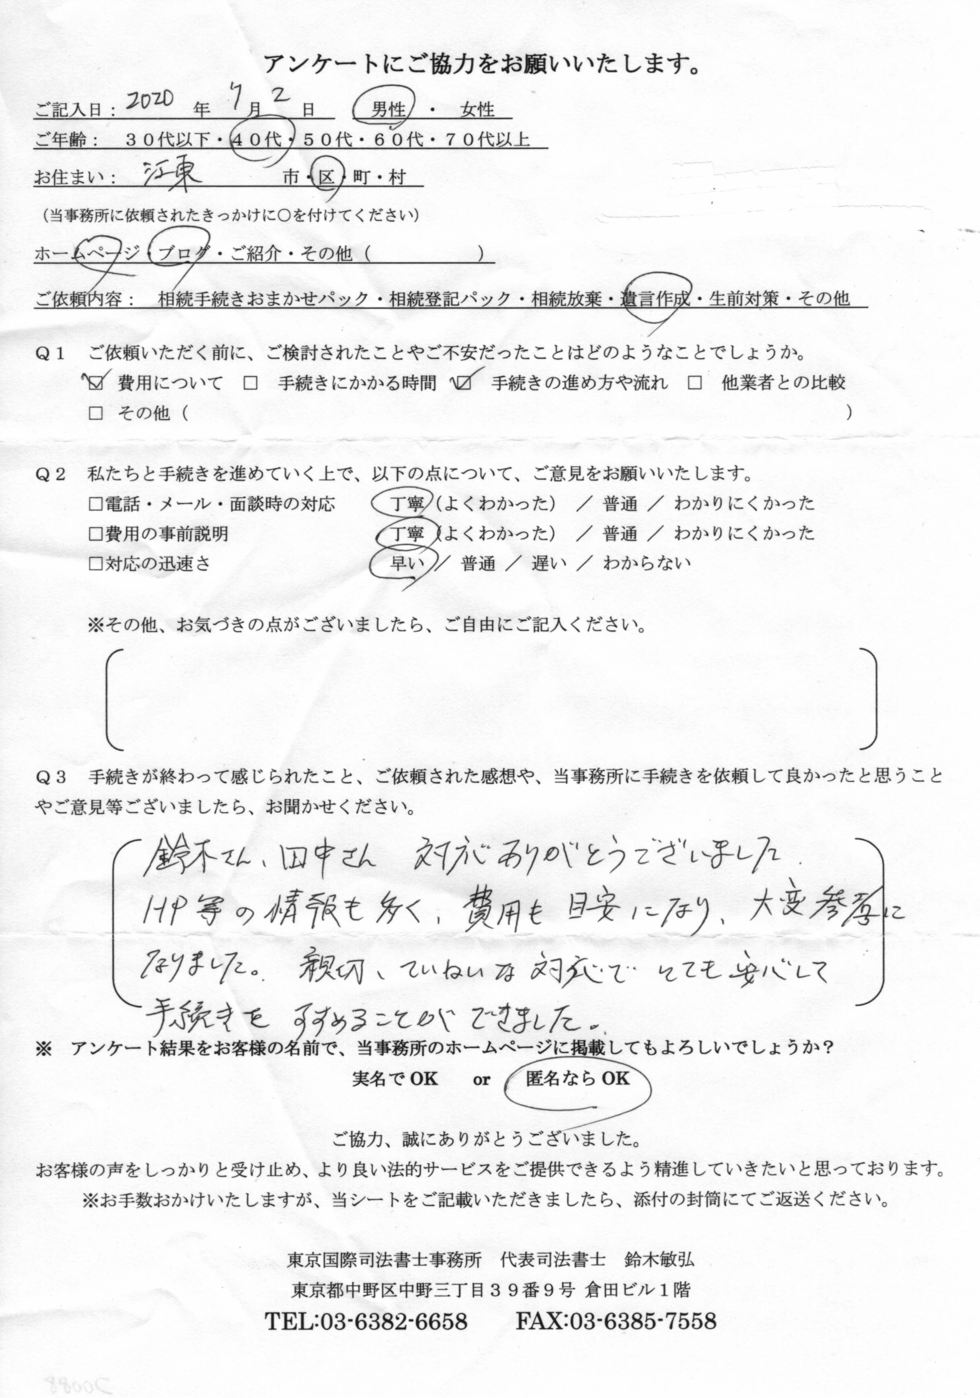 アンケートにご協力をお願いいたします。
ご記入日： 2020 年 7 月 2 日 男性 ・ 女性
ご年齢： ３０代以下・４０代・５０代・６０代・７０代以上
お住まい： 江東 市・区・町・村
（当事務所に依頼されたきっかけに○を付けてください）
ホームページ・ブログ・ご紹介・その他（ ）
ご依頼内容： 相続手続きおまかせパック・相続登記パック・相続放棄・遺言作成・生前対策・その他
Ｑ１ ご依頼いただく前に、ご検討されたことやご不安だったことはどのようなことでしょうか。
☑ 費用について □ 手続きにかかる時間 ☑ 手続きの進め方や流れ □ 他業者との比較
□ その他（ ）
Ｑ２ 私たちと手続きを進めていく上で、以下の点について、ご意見をお願いいたします。
□電話・メール・面談時の対応 丁寧（よくわかった） ／ 普通 ／ わかりにくかった
□費用の事前説明 丁寧（よくわかった） ／ 普通 ／ わかりにくかった
□対応の迅速さ 早い ／ 普通 ／ 遅い ／ わからない
※その他、お気づきの点がございましたら、ご自由にご記入ください。
Ｑ３ 手続きが終わって感じられたこと、ご依頼された感想や、当事務所に手続きを依頼して良かったと思うこと
やご意見等ございましたら、お聞かせください。
鈴木さん、田中さん 対応ありがとうございました。
HP等の情報も多く、費用も目安になり、大変参考に
なりました。親切、ていねいな対応でとても安心して
手続きをすすめることができました。
※ アンケート結果をお客様の名前で、当事務所のホームページに掲載してもよろしいでしょうか？
実名でOK or 匿名ならOK
ご協力、誠にありがとうございました。
お客様の声をしっかりと受け止め、より良い法的サービスをご提供できるよう精進していきたいと思っております。
※お手数おかけいたしますが、当シートをご記載いただきましたら、添付の封筒にてご返送ください。
東京国際司法書士事務所 代表司法書士 鈴木敏弘
東京都中野区中野三丁目３９番９号 倉田ビル１階
TEL:03-6382-6658 FAX:03-6385-7558